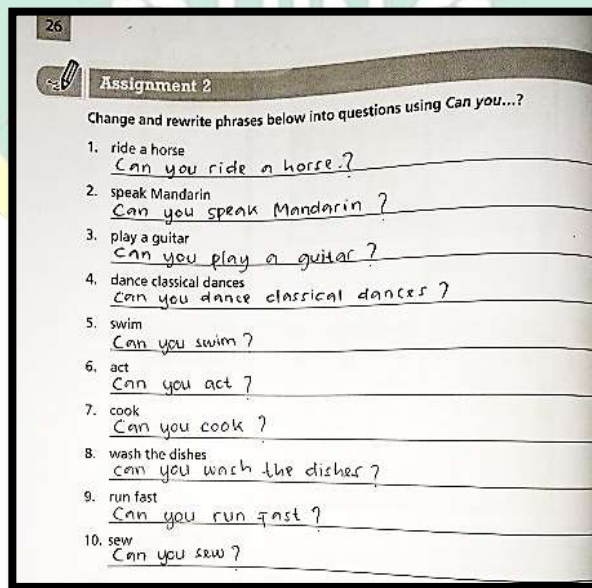 26
Assignment 2
Change and rewrite phrases below into questions using Can you...?
1. ride a horse
Can you ride a horse.?
2. speak Mandarin
Can you speak Mandarin ?
3. play a guitar
Can you play a guitar ?
4. dance classical dances
Can you dance classical dances ?
5. swim
Can you swim ?
6. act
Can you act ?
7. cook
Can you cook ?
8. wash the dishes
Can you wash the dishes ?
9. run fast
Can you run fast ?
10. sew
Can you sew ?